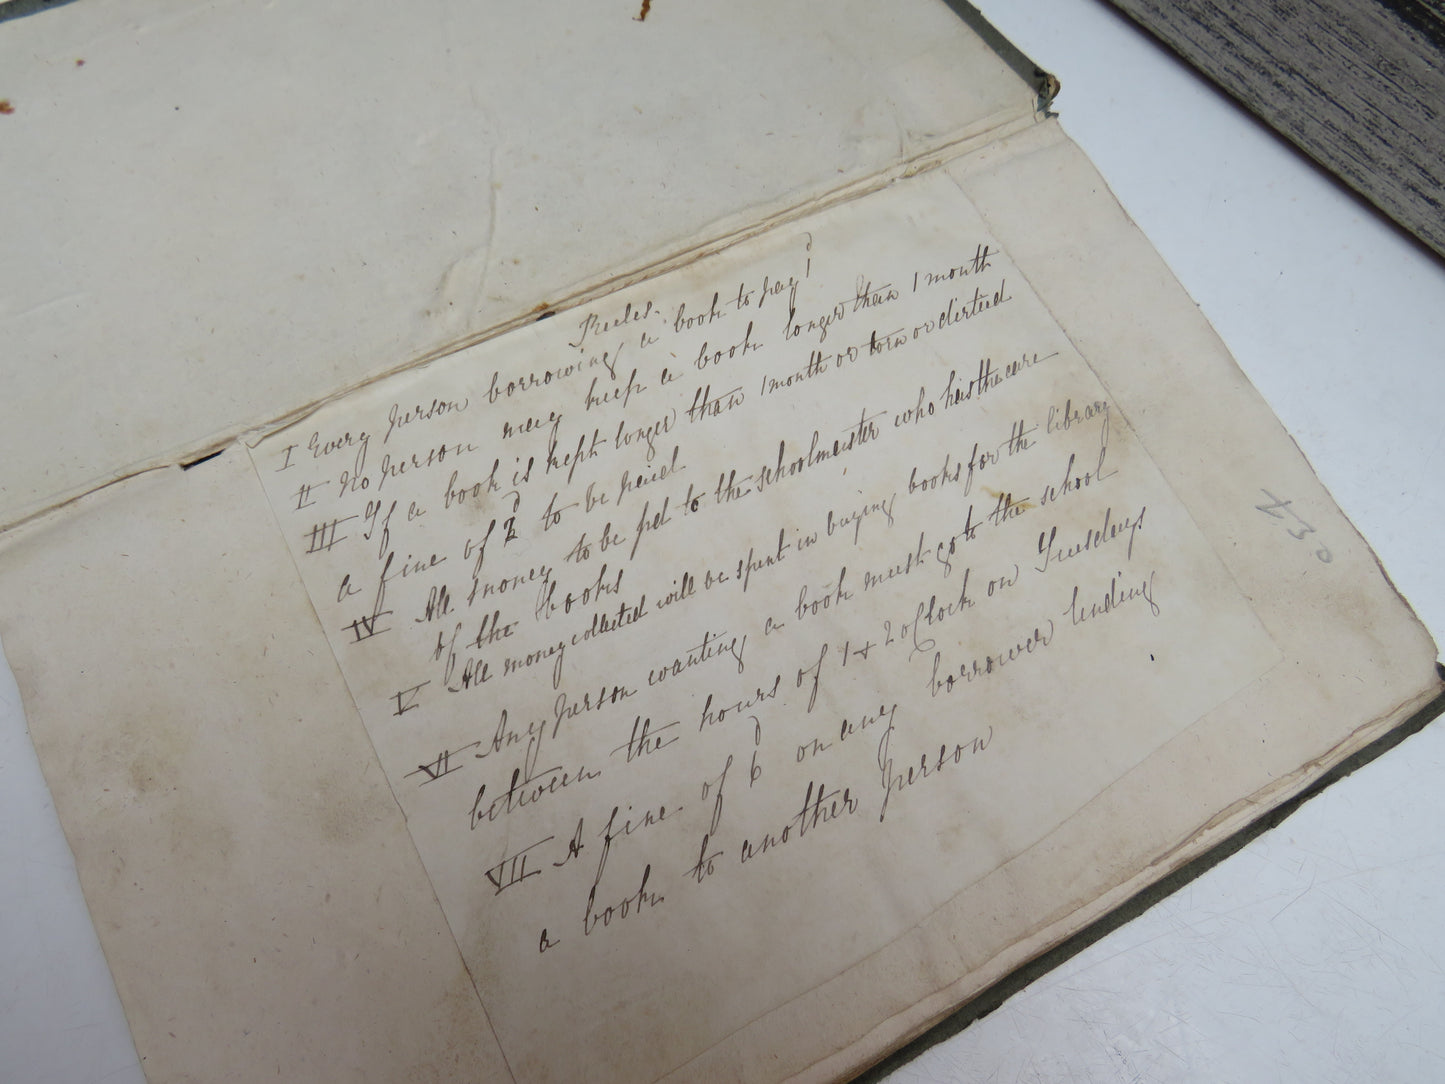 Rules.
I Every person borrowing a book to pay 1d
II No person may keep a book longer than 1 month
III If a book is kept longer than 1 month or torn or dirtied
a fine of d to be paid
IV All money to be pd to the schoolmaster who has the care
of the books
V All money collected will be spent in buying books for the library
VI Any person wanting a book must go to the school
between the hours of 1 + 2 oClock on Tuesdays
VII A fine of 6d on any borrower lending
a book to another person